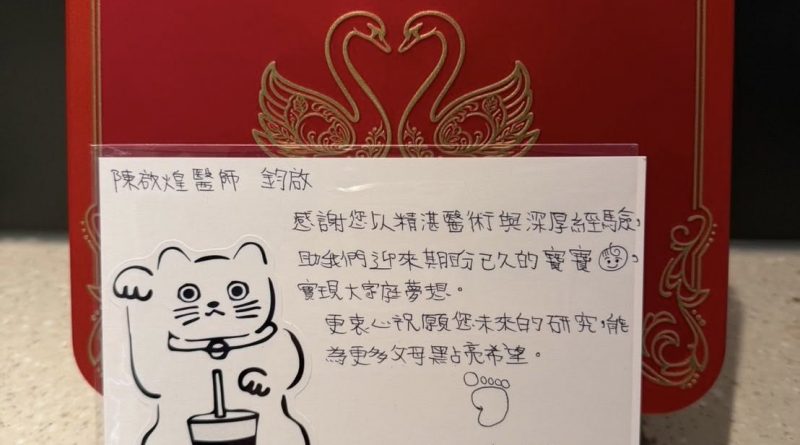 陳啟煌醫師 鈞啟
感謝您以精湛醫術與深厚經驗，
助我們迎來期盼已久的寶寶，
實現大家庭夢想。
更衷心祝願您未來的研究，能
為更多父母點亮希望。